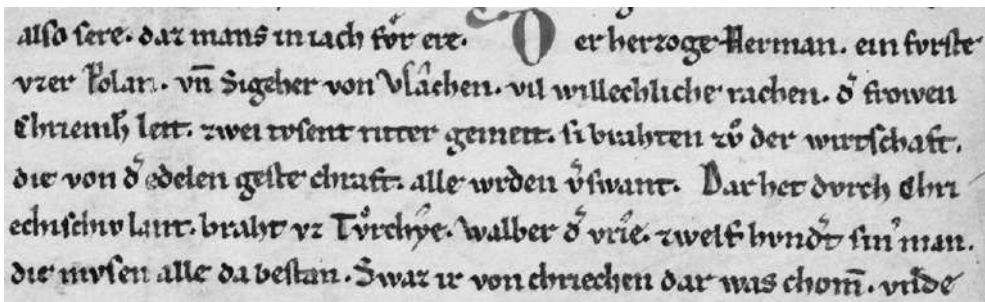 also sere. daz mans in iach fv̊r ere. Der herzoge Herman. ein fvrste
vzer Polan. vn̄ Sigeher von Vlâchen. vil willechliche rachen. d͛ frowen
Chriemh̄ leit. zwei tvsent ritter gemeit. si brahten zv̊ der wirtschaft.
die von d͛ edelen geste chraft. alle wrden v͛swant. Dar het dvrch Chri
echischiv lant. braht vz Tv̊rchŷe. Walber d͛ vrîe. zwelf hvnd͛t sin͛ man.
die mvsen alle da bestan. Swaz ir von chriechen dar was chom̄. vnde